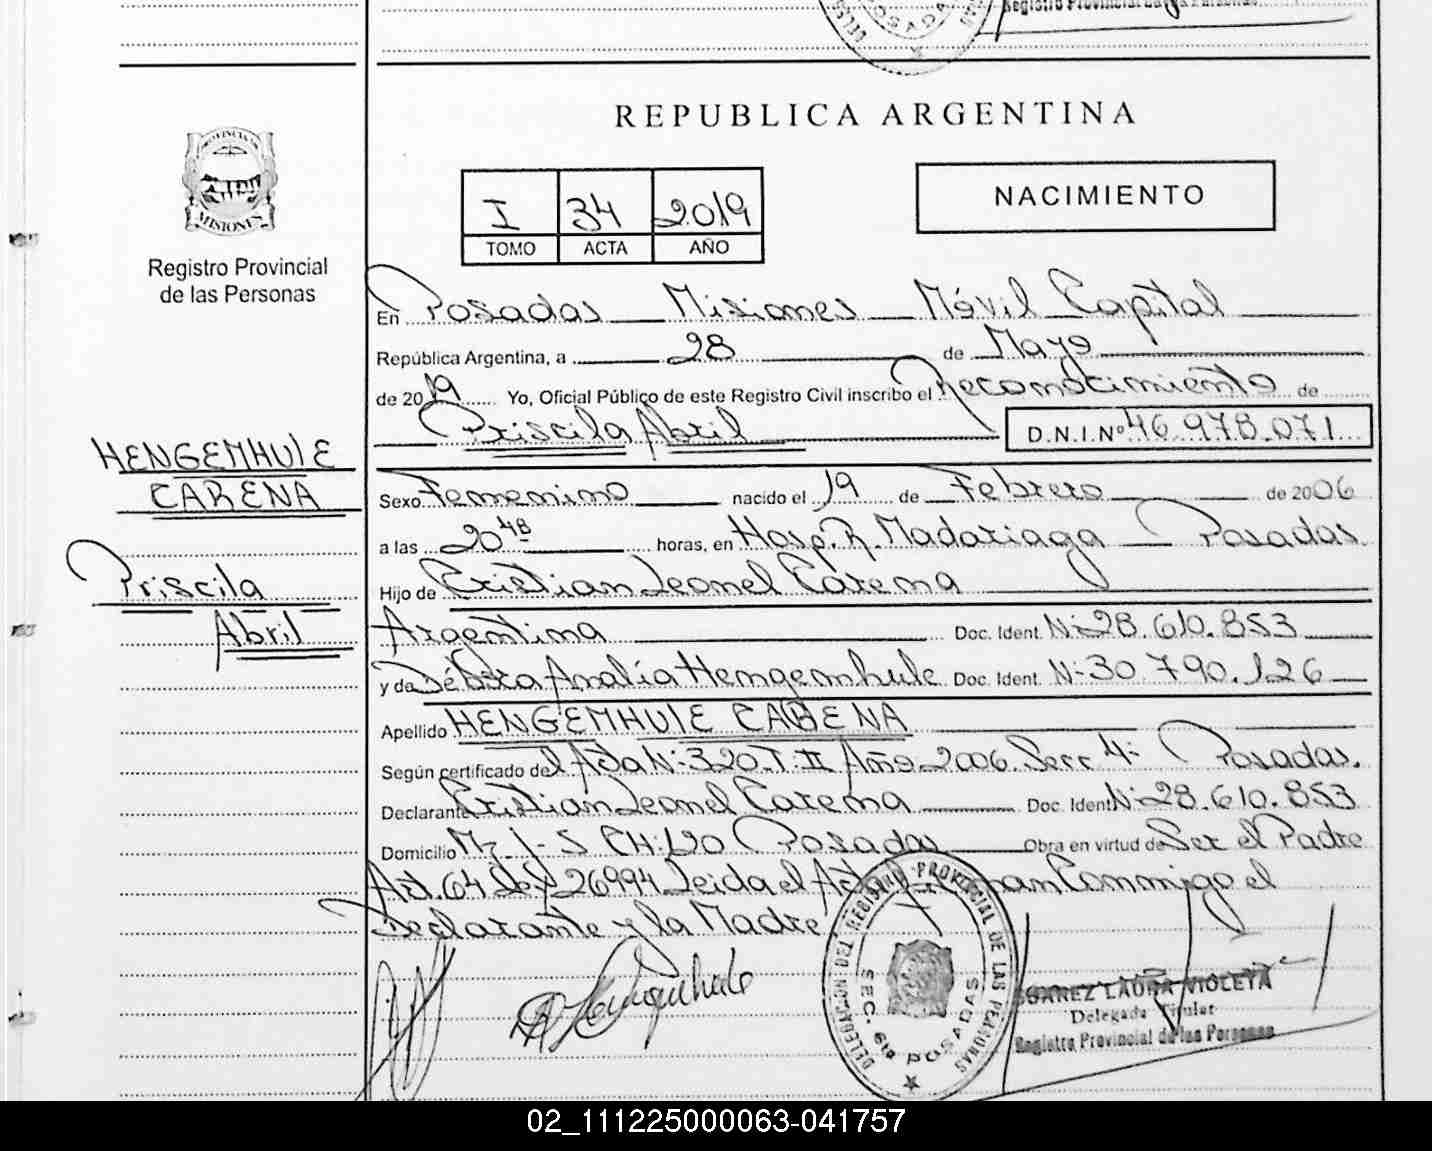 Registro Provincial de las Personas
POSADAS
REPUBLICA ARGENTINA
PROVINCIA DE
MISIONES
Registro Provincial
de las Personas
I 34 2019
TOMO ACTA AÑO
NACIMIENTO
En Posadas Misiones Móvil Capital
República Argentina, a 28 de Mayo
de 2019 Yo, Oficial Público de este Registro Civil inscribo el Reconocimiento de
Priscila Abril D.N.I.Nº 46.978.071
HENGEMHULE
CARENA
Priscila
Abril
Sexo Femenino nacido el 19 de Febrero de 2006
a las 20 48 horas, en Hosp. R. Madariaga Posadas
Hijo de Cristian Leonel Carena
Argentina Doc. Ident. Nº 28.610.853
y de Débora Analía Hengemhule Doc. Ident. Nº 30.790.126
Apellido HENGEMHULE CARENA
Según certificado del Acta Nº 320. T. II Año 2006. Secc 4º Posadas.
Declarante Cristian Leonel Carena Doc. Ident Nº 28.610.853
Domicilio Mz J-5 CH:120 Posadas Obra en virtud de Ser el Padre
Art. 64 Ley 26994 Leida el Acta Firman Conmigo el
Declarante y la Madre.
Hengemhule
DELEGACION DEL REGISTRO PROVINCIAL DE LAS PERSONAS
SEC. 6ta POSADAS
SUAREZ LAURA VIOLETA
Delegada Titular
Registro Provincial de las Personas
02_111225000063-041757